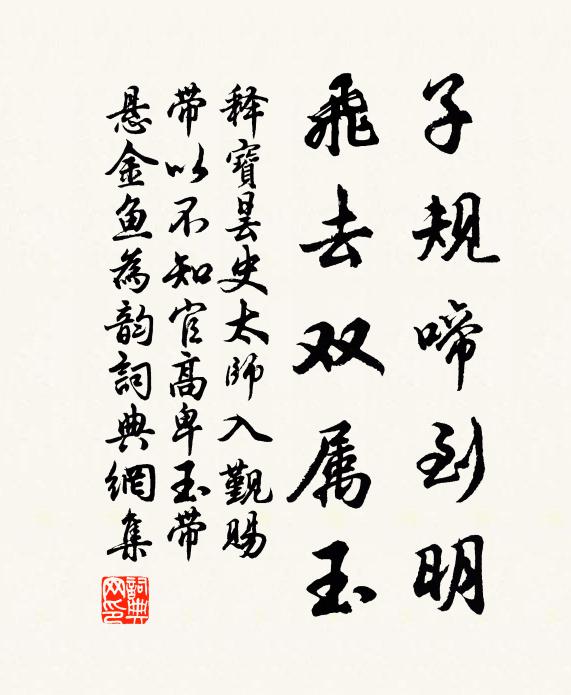 子规啼到明
飛去双属玉
释寶曇史太師入觐賜
带以不知官高卑玉带
悬金魚為韵詞典網集
詞典网印